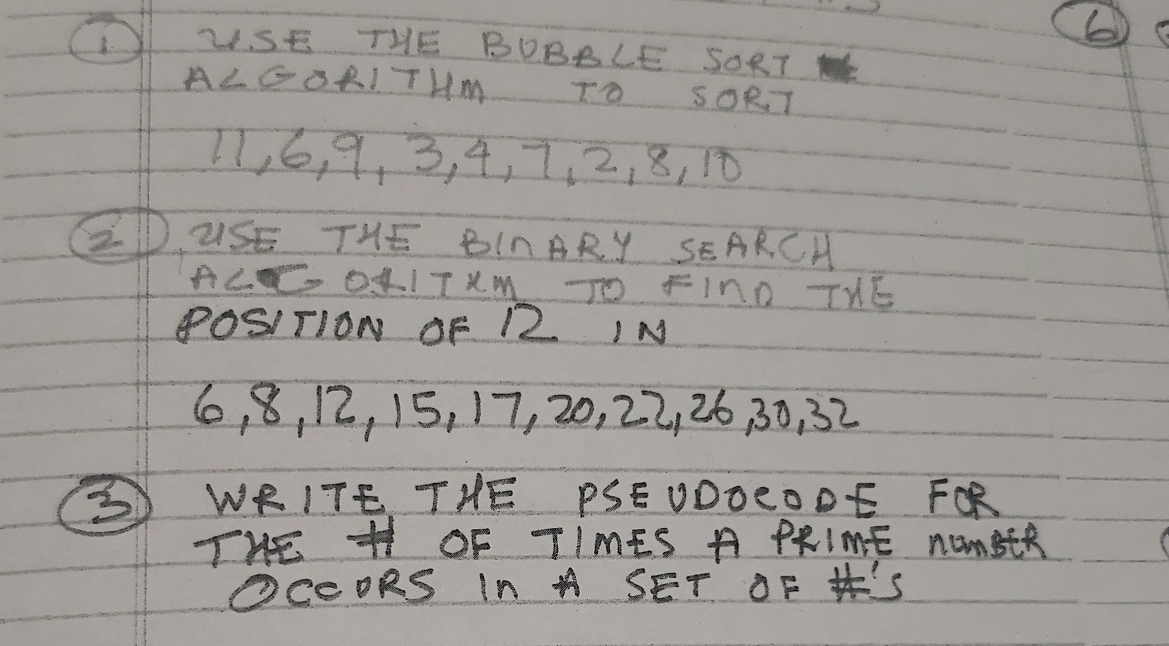 1 USE THE BUBBLE SORT
ALGORITHM TO SORT
11,6,9,3,4,7,2,8,10
2 USE THE BINARY SEARCH
ALGORITHM TO FIND THE
POSITION OF 12 IN
6,8,12,15,17,20,22,26,30,32
3 WRITE THE PSEUDOCODE FOR
THE # OF TIMES A PRIME NUMBER
OCCURS IN A SET OF #'S
6